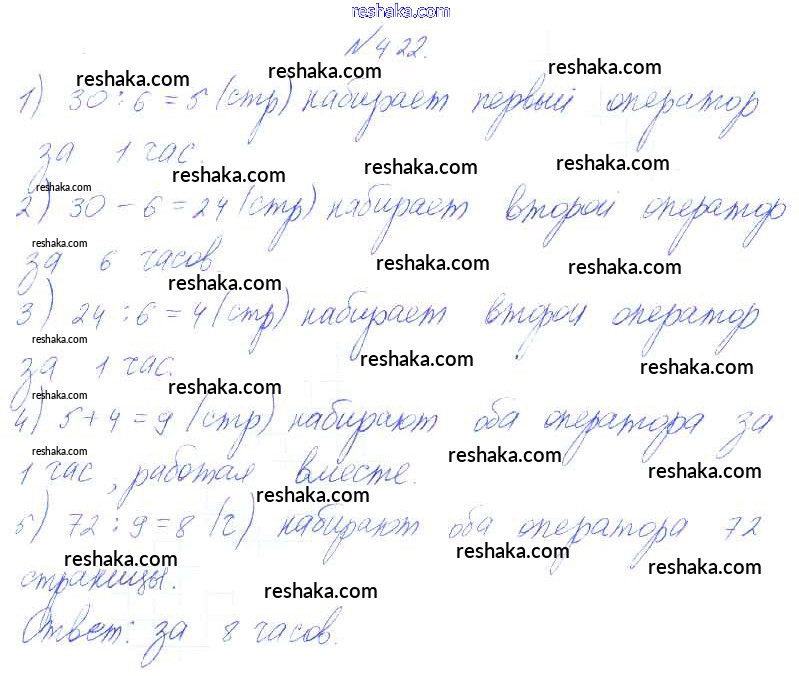 reshaka.com
№422.
reshaka.com reshaka.com reshaka.com
1) 30 : 6 = 5 (стр) набирает первый оператор
за 1 час.
reshaka.com reshaka.com reshaka.com
reshaka.com
2) 30 - 6 = 24 (стр) набирает второй оператор
reshaka.com
за 6 часов.
reshaka.com reshaka.com reshaka.com
3) 24 : 6 = 4 (стр) набирает второй оператор
reshaka.com
за 1 час.
reshaka.com reshaka.com reshaka.com
reshaka.com
4) 5 + 4 = 9 (стр) набирают оба оператора за
reshaka.com
1 час, работая вместе.
reshaka.com reshaka.com reshaka.com
5) 72 : 9 = 8 (ч) набирают оба оператора 72
reshaka.com reshaka.com reshaka.com
страницы.
reshaka.com
Ответ: за 8 часов.